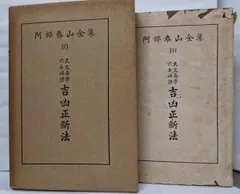 阿部泰山全集
10
天文易學
六壬神課
吉凶正断法
阿部泰山全集
10
天文易學
六壬神課
吉凶正断法